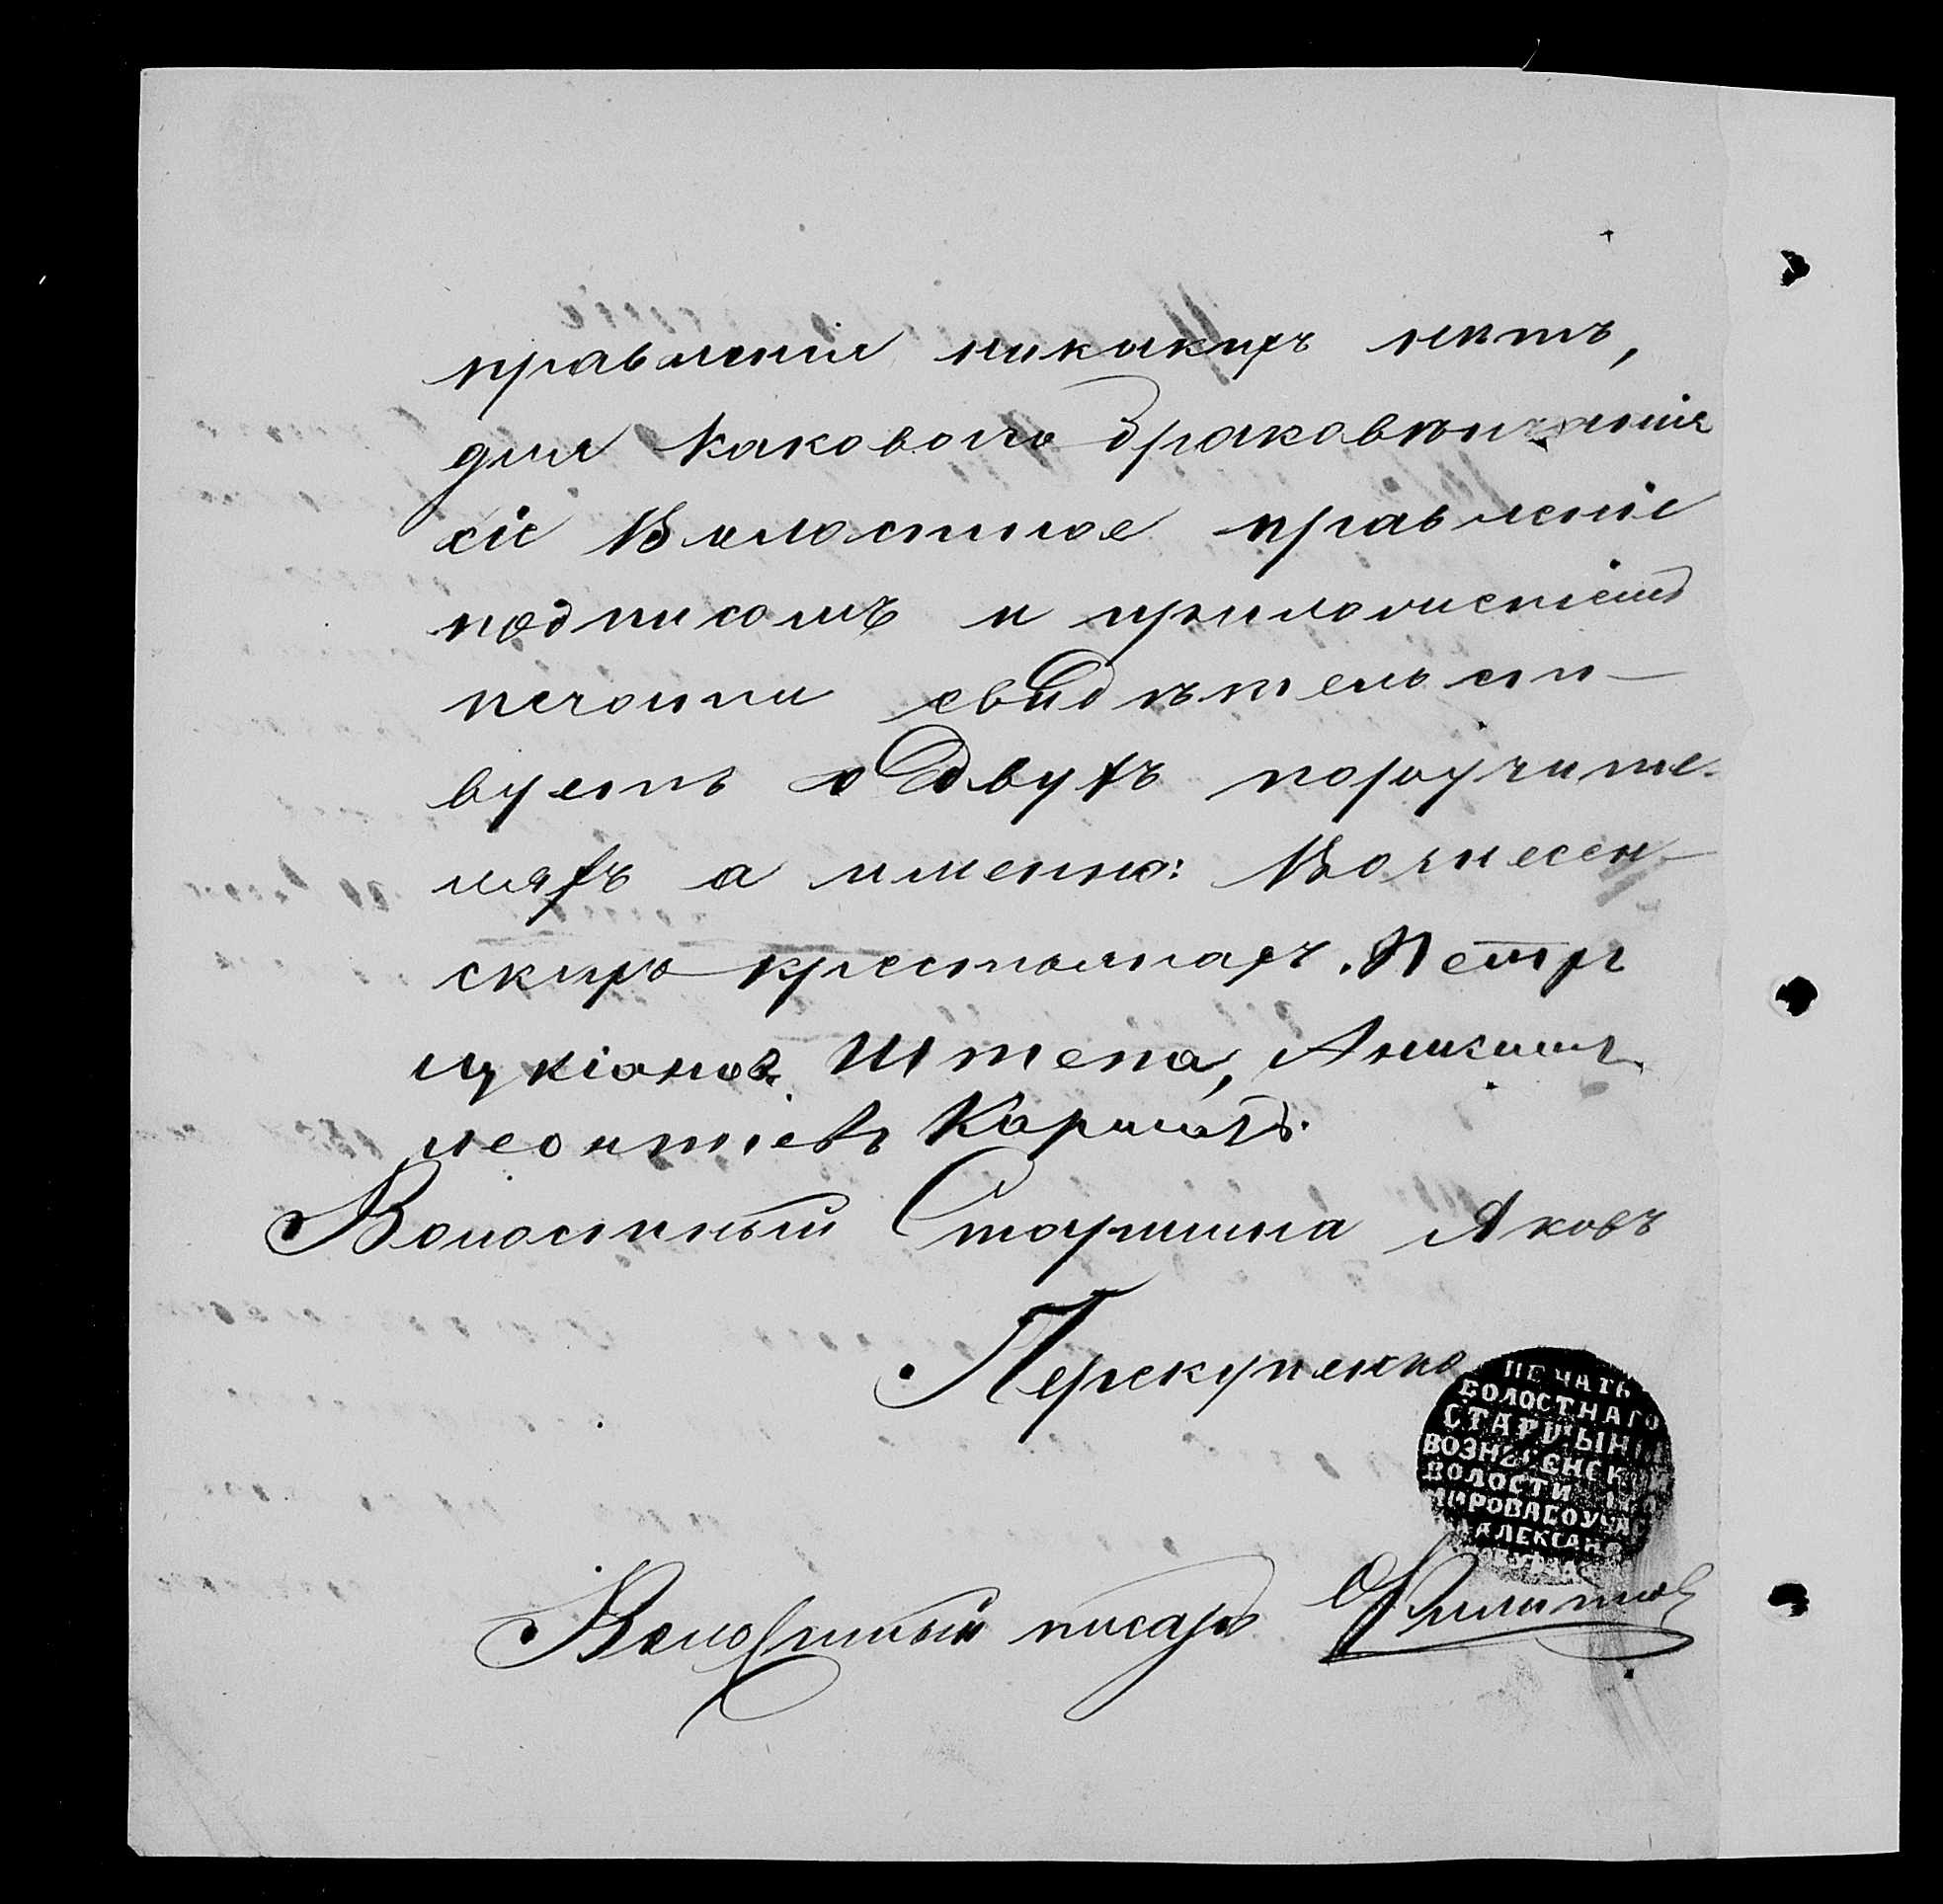 правленія никакихъ нетъ,
для каковаго браковѣнчанія
сіе Волостное правленіе
подписомъ и приложеніемъ
печати свидѣтельст-
вуетъ о двухъ поручите-
ляхъ а именно: Вознесен-
скихъ крестьянахъ. Петръ
Лукіановъ Штепа,
Леонтіевъ
Волостный Старшина Яковъ
Перекупенко
ПЕЧАТЬ
ВОЛОСТНАГО
СТАРШИНЫ
ВОЗНЕСЕНСКОЙ
ВОЛОСТИ
МИРОВАГО УЧАС
АЛЕКСАНД
Волостный писарь Филиповъ